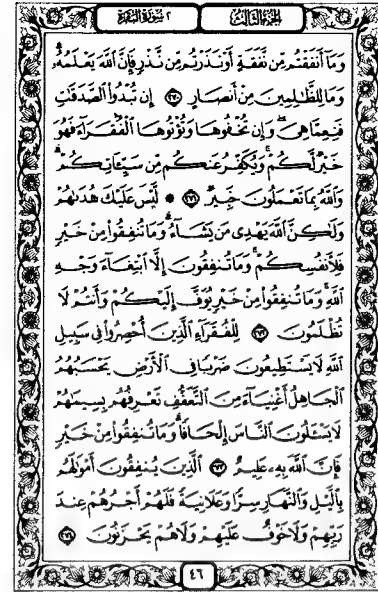 ٢ سُورَةُ البَقَرَةِ
الجُزءُ الثَّالِثُ
وَمَآ أَنفَقْتُم مِّن نَّفَقَةٍ أَوْ نَذَرْتُم مِّن نَّذْرٍ فَإِنَّ ٱللَّهَ يَعْلَمُهُۥ
وَمَا لِلظَّٰلِمِينَ مِنْ أَنصَارٍ ٢٧٠ إِن تُبْدُوا۟ ٱلصَّدَقَٰتِ
فَنِعِمَّا هِىَ وَإِن تُخْفُوهَا وَتُؤْتُوهَا ٱلْفُقَرَآءَ فَهُوَ
خَيْرٌ لَّكُمْ وَيُكَفِّرُ عَنكُم مِّن سَيِّـَٔاتِكُمْ
وَٱللَّهُ بِمَا تَعْمَلُونَ خَبِيرٌ ٢٧١ ۞ لَّيْسَ عَلَيْكَ هُدَىٰهُمْ
وَلَٰكِنَّ ٱللَّهَ يَهْدِى مَن يَشَآءُ وَمَا تُنفِقُوا۟ مِنْ خَيْرٍ
فَلِأَنفُسِكُمْ وَمَا تُنفِقُونَ إِلَّا ٱبْتِغَآءَ وَجْهِ
ٱللَّهِ وَمَا تُنفِقُوا۟ مِنْ خَيْرٍ يُوَفَّ إِلَيْكُمْ وَأَنتُمْ لَا
تُظْلَمُونَ ٢٧٢ لِلْفُقَرَآءِ ٱلَّذِينَ أُحْصِرُوا۟ فِى سَبِيلِ
ٱللَّهِ لَا يَسْتَطِيعُونَ ضَرْبًا فِى ٱلْأَرْضِ يَحْسَبُهُمُ
ٱلْجَاهِلُ أَغْنِيَآءَ مِنَ ٱلتَّعَفُّفِ تَعْرِفُهُم بِسِيمَٰهُمْ
لَا يَسْـَٔلُونَ ٱلنَّاسَ إِلْحَافًا وَمَا تُنفِقُوا۟ مِنْ خَيْرٍ
فَإِنَّ ٱللَّهَ بِهِۦ عَلِيمٌ ٢٧٣ ٱلَّذِينَ يُنفِقُونَ أَمْوَٰلَهُم
بِٱلَّيْلِ وَٱلنَّهَارِ سِرًّا وَعَلَانِيَةً فَلَهُمْ أَجْرُهُمْ عِندَ
رَبِّهِمْ وَلَا خَوْفٌ عَلَيْهِمْ وَلَا هُمْ يَحْزَنُونَ ٢٧٤
٤٦